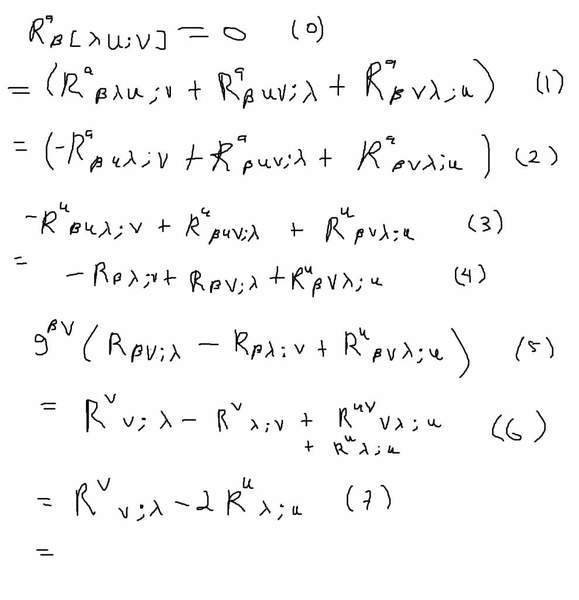 R^a_{β[λu;v]} = 0 (0)
= (R^a_{βλu;v} + R^a_{βuv;λ} + R^a_{βvλ;u}) (1)
= (-R^a_{βuλ;v} + R^a_{βuv;λ} + R^a_{βvλ;u}) (2)
-R^u_{βuλ;v} + R^u_{βuv;λ} + R^u_{βvλ;u} (3)
= -R_{βλ;v} + R_{βv;λ} + R^u_{βvλ;u} (4)
g^{βv} (R_{βv;λ} - R_{βλ;v} + R^u_{βvλ;u}) (5)
= R^v_{v;λ} - R^v_{λ;v} + R^{uv}_{vλ;u} (6)
+ R^u_{λ;u}
= R^v_{v;λ} - 2R^u_{λ;u} (7)
=